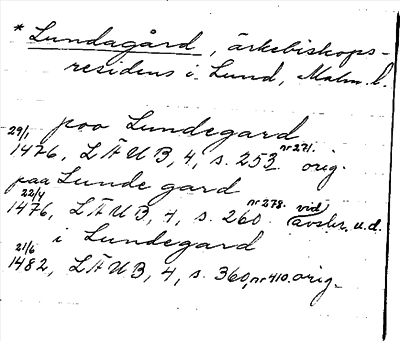 * Lundagård, ärkebiskops-
residens i Lund, Malm. l.
poo Lundegard
29/1 1476, LÄUB, 4, s. 253 nr 271. orig.
paa Lunde gard
22/4 1476, LÄUB, 4, s. 260. nr 278. vid avskr. u.d.
i Lundegard
21/6 1482, LÄUB, 4, s. 360, nr 410. orig.